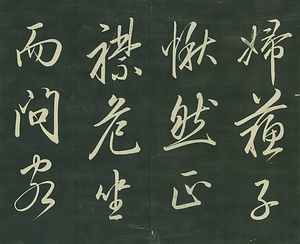 婦蘇子
愀然正
襟危坐
而問客